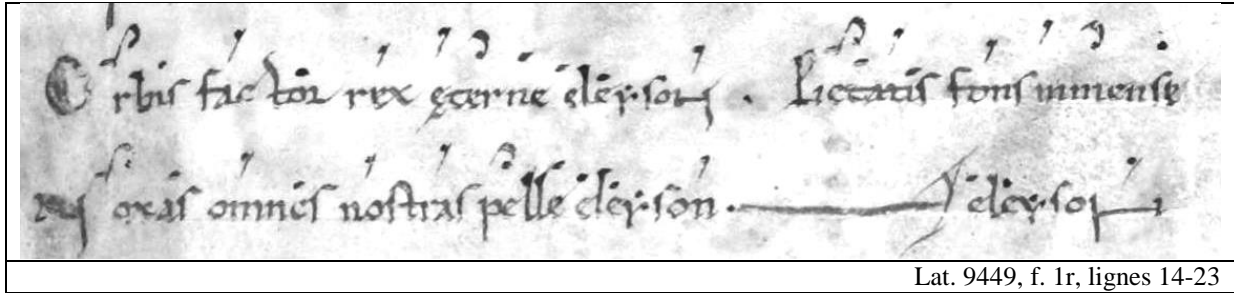 Orbis factor rex ęterne eleyson . Pietatis fons inmense
Noxas omnes nostras pelle eleyson . eleyson
Lat. 9449, f. 1r, lignes 14-23